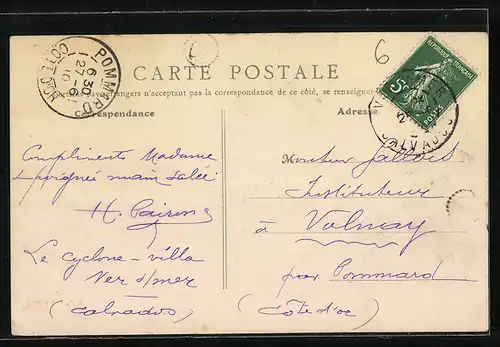 POMMARD
6 30
27-6
10
COTE D'OR
6
REPUBLIQUE FRANÇAISE
5c
POSTES
VER
CALVADOS
CARTE POSTALE
étrangers n'acceptent pas la correspondance de ce côté, se renseigner
Correspondance
Adresse
Compliments Madame
poignée main
H.
Le Cyclone - villa
Ver s/mer
(Calvados)
Monsieur Jallois
Instituteur
à Volnay
par Pommard
(Côte d'or)